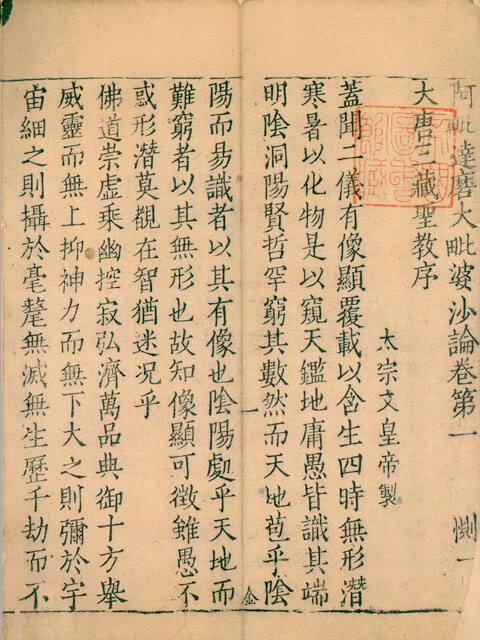 阿毗達磨大毗婆沙論卷第一 惻一
大唐三藏聖教序
太宗文皇帝製
蓋聞二儀有像顯覆載以含生四時無形潛
寒暑以化物是以窺天鑑地庸愚皆識其端
明陰洞陽賢哲罕窮其數然而天地苞乎陰
一 金
陽而易識者以其有像也陰陽處乎天地而
難窮者以其無形也故知像顯可徵雖愚不
惑形潛莫覩在智猶迷况乎
佛道崇虛乘幽控寂弘濟萬品典御十方舉
威靈而無上抑神力而無下大之則彌於宇
宙細之則攝於毫氂無滅無生歷千劫而不